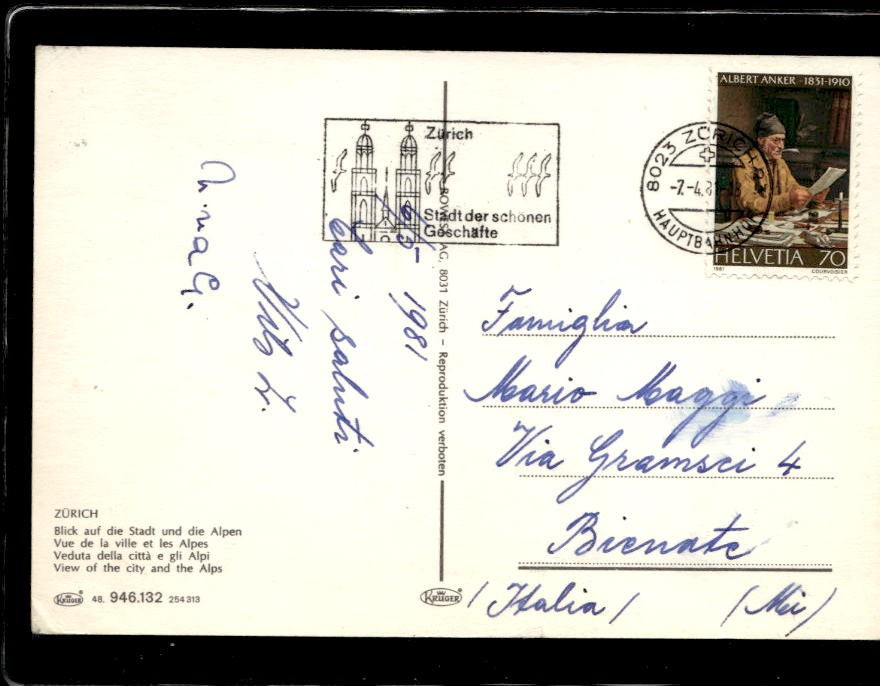 ALBERT ANKER · 1831-1910
HELVETIA 70
1981 COURVOISIER
8023 ZÜRICH
-7.-4.8
HAUPTBAHNHOF
Zürich
Stadt der schönen
Geschäfte
1981
Cari saluti
Vito
Famiglia
Mario Maggi
Via Gramsci 4
Bienate
(Italia) (Mi)
AG, 8031 Zürich – Reproduktion verboten
ZÜRICH
Blick auf die Stadt und die Alpen
Vue de la ville et les Alpes
Veduta della città e gli Alpi
View of the city and the Alps
KRÜGER 48. 946.132 254 313
KRÜGER